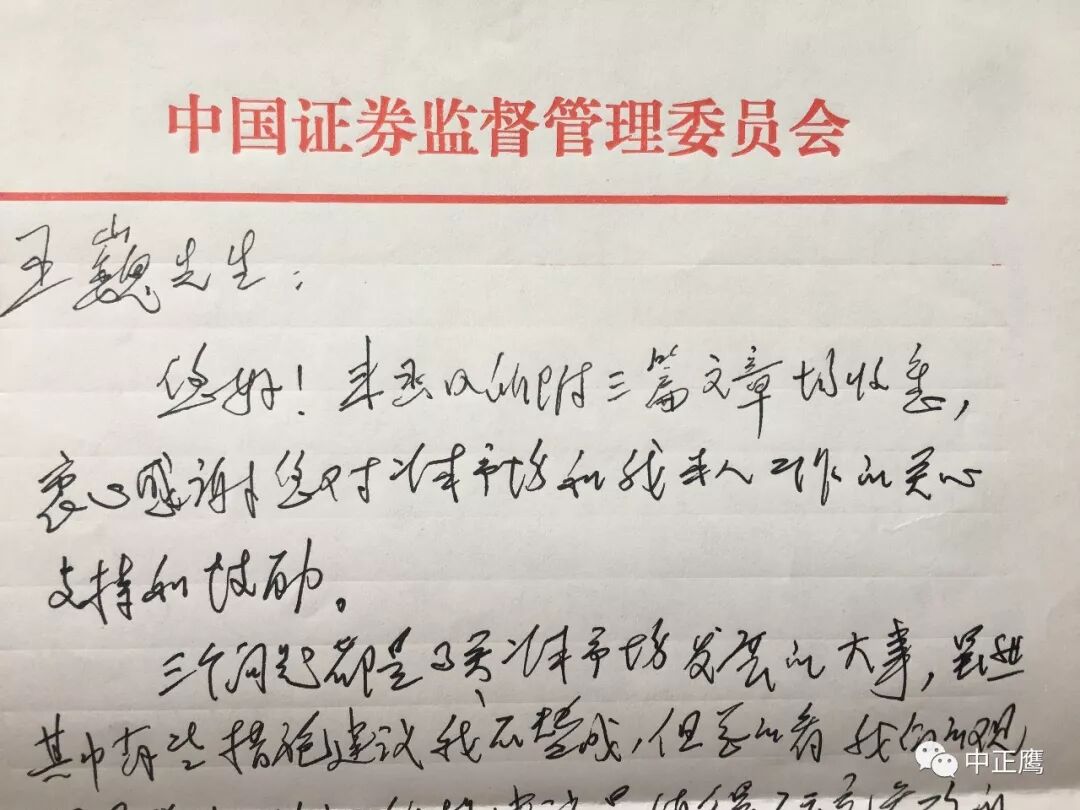 中国证券监督管理委员会
王巍先生:
您好!来函及所附三篇文章均收悉,
衷心感谢您对资本市场和我本人工作的关心
支持和鼓励。
三个问题都是 资本市场发展的大事,虽然
其中有些措施建议我不赞成,但总的看我们的观
中正鹰